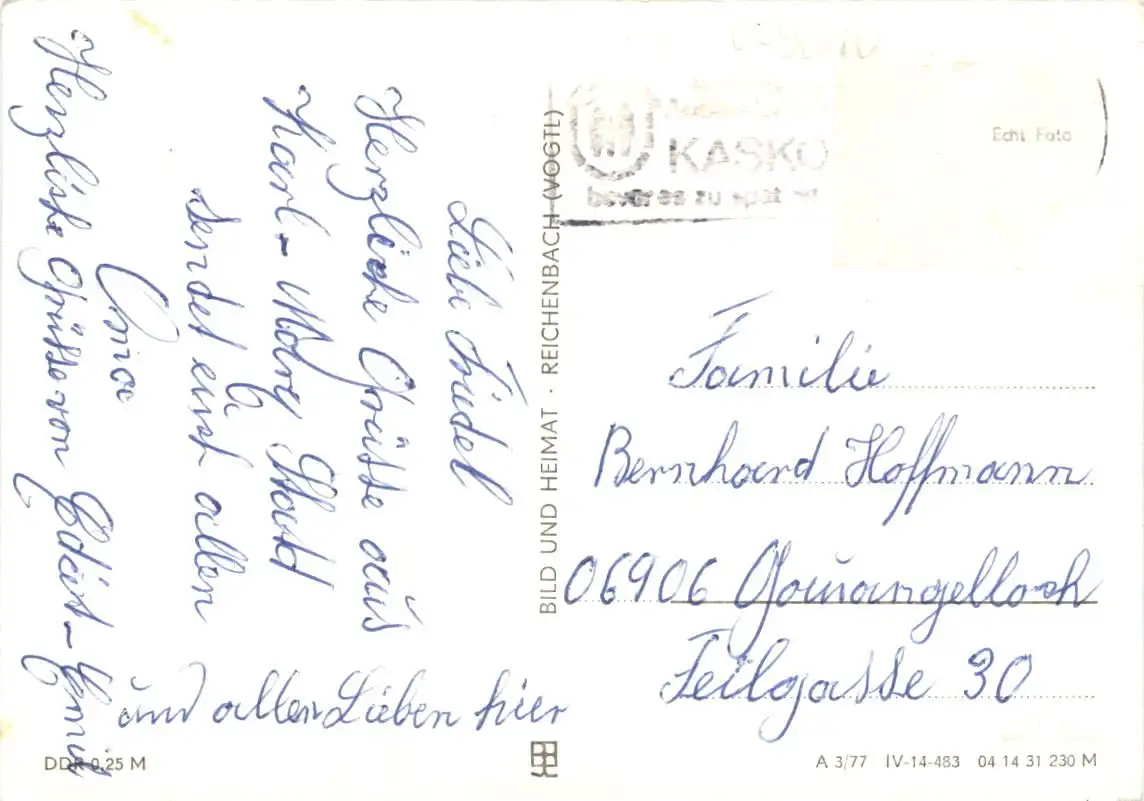 Liebe Friedel
Herzliche Grüsse aus
Karl-Marx Stadt
sendet euch allen
Anna
Herzliche Grüsse von Edith-
und allen Lieben hier
BILD UND HEIMAT · REICHENBACH (VOGTL)
KASKO
bevor es zu spät ist
Echt Foto
Familie
Bernhard Hoffmann
06906 Gauangelloch
Feilgasse 30
DDR 0,25 M
A 3/77 IV-14-483 04 14 31 230 M